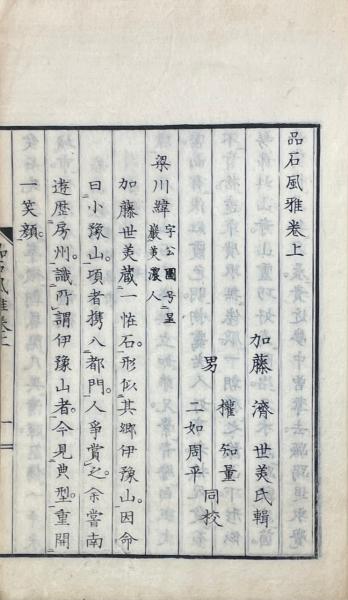 品石風雅卷上
加藤濟世美氏輯
男 權知量
二如周平 同校
梁川緯 字公圖号星巖美濃人
加藤世美藏一恠石。形似其鄉伊豫山。因命
曰小豫山。項者携入都門。人爭賞之。余嘗南
遊歷房州。識所謂伊豫山者。今見典型。重開
一笑顔。
品石風雅卷上
一